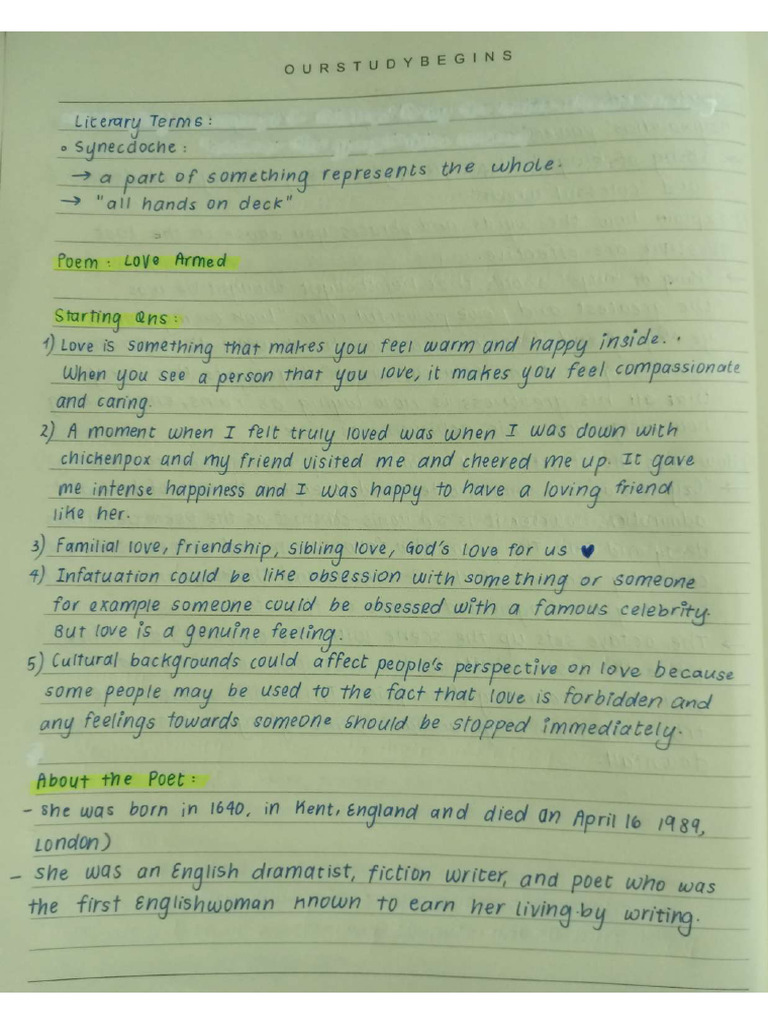 OURSTUDYBEGINS
Literary Terms:
• Synecdoche:
→ a part of something represents the whole.
→ "all hands on deck"
Poem: Love Armed
Starting Qns:
1) Love is something that makes you feel warm and happy inside.
When you see a person that you love, it makes you feel compassionate
and caring.
2) A moment when I felt truly loved was when I was down with
chickenpox and my friend visited me and cheered me up. It gave
me intense happiness and I was happy to have a loving friend
like her.
3) Familial love, friendship, sibling love, God's love for us ♥
4) Infatuation could be like obsession with something or someone
for example someone could be obsessed with a famous celebrity.
But love is a genuine feeling.
5) Cultural backgrounds could affect people's perspective on love because
some people may be used to the fact that love is forbidden and
any feelings towards someone should be stopped immediately.
About the Poet:
- she was born in 1640, in Kent, England and died on April 16 1989,
London)
- she was an English dramatist, fiction writer, and poet who was
the first Englishwoman known to earn her living by writing.